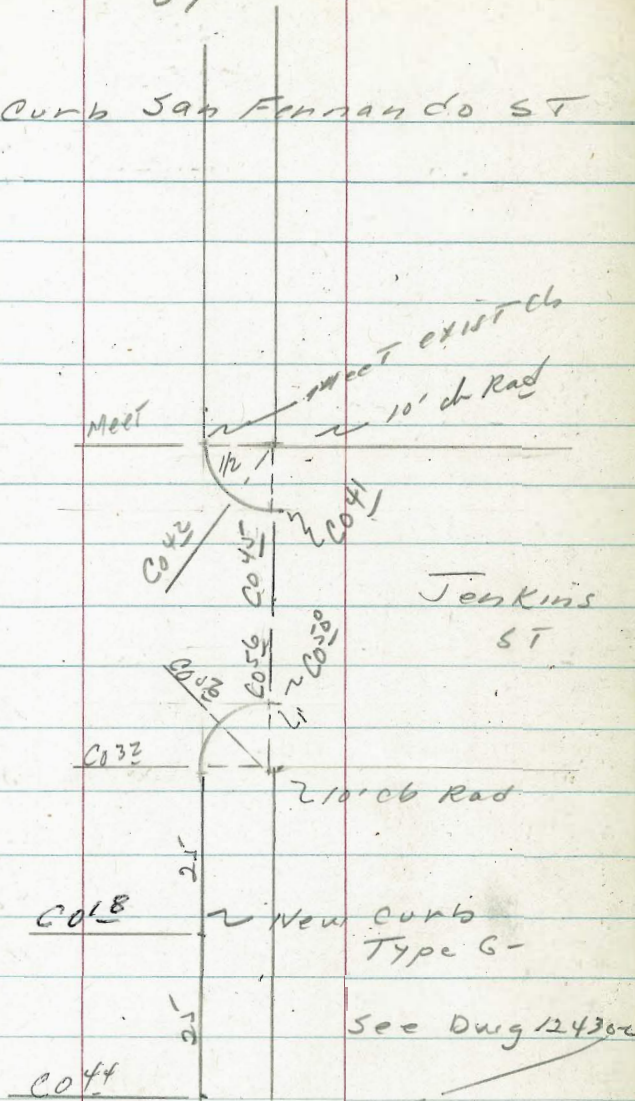 Curb San Fernando ST
Meet exist cb
10' cb Rad
Meet
1/2
C0 41
C0 42
C0 45
Jenkins
ST
C0 56
C0 50
C0 32
10' cb Rad
25
C0 18
New Curb
Type G-
25
See Dwg
C0 44